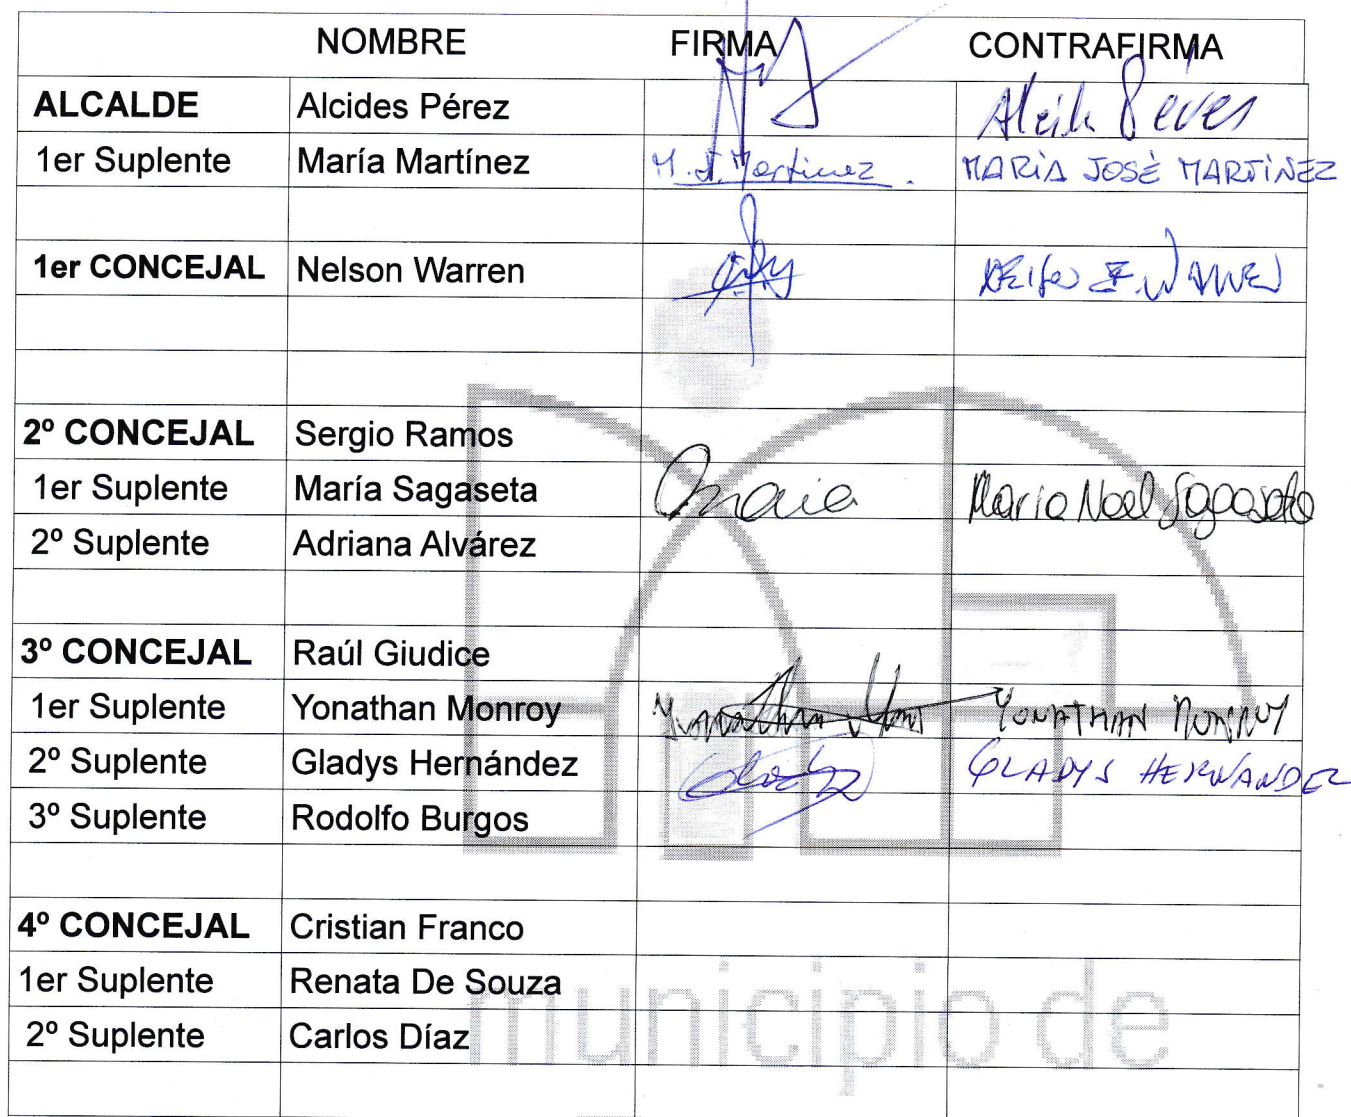 NOMBRE FIRMA CONTRAFIRMA
ALCALDE Alcides Pérez
1er Suplente María Martínez M.J. Martinez. MARÌA JOSÈ MARTÌNEZ
1er CONCEJAL Nelson Warren
2º CONCEJAL Sergio Ramos
1er Suplente María Sagaseta Maria Noel Sagaseta
2º Suplente Adriana Alvárez
3º CONCEJAL Raúl Giudice
1er Suplente Yonathan Monroy YONATHAN MONROY
2º Suplente Gladys Hernández GLADYS HERNANDEZ
3º Suplente Rodolfo Burgos
4º CONCEJAL Cristian Franco
1er Suplente Renata De Souza
2º Suplente Carlos Díaz
municipio de